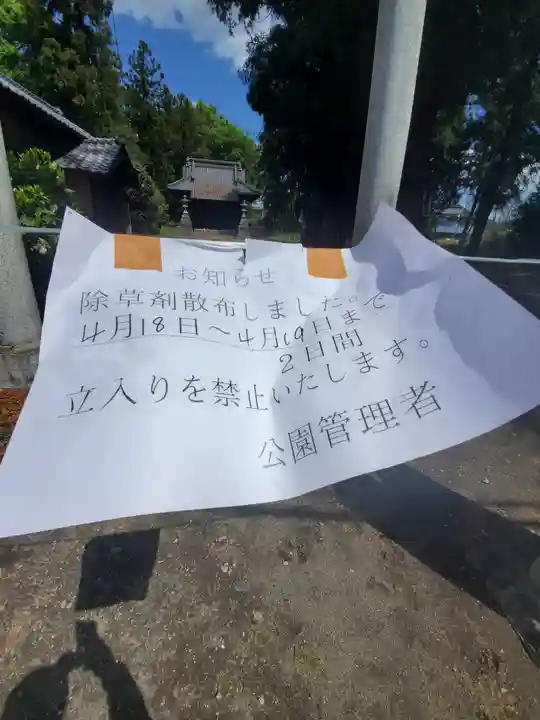 お知らせ
除草剤散布しました。
4月18日～4月19日まで
2日間
立入りを禁止いたします。
公園管理者